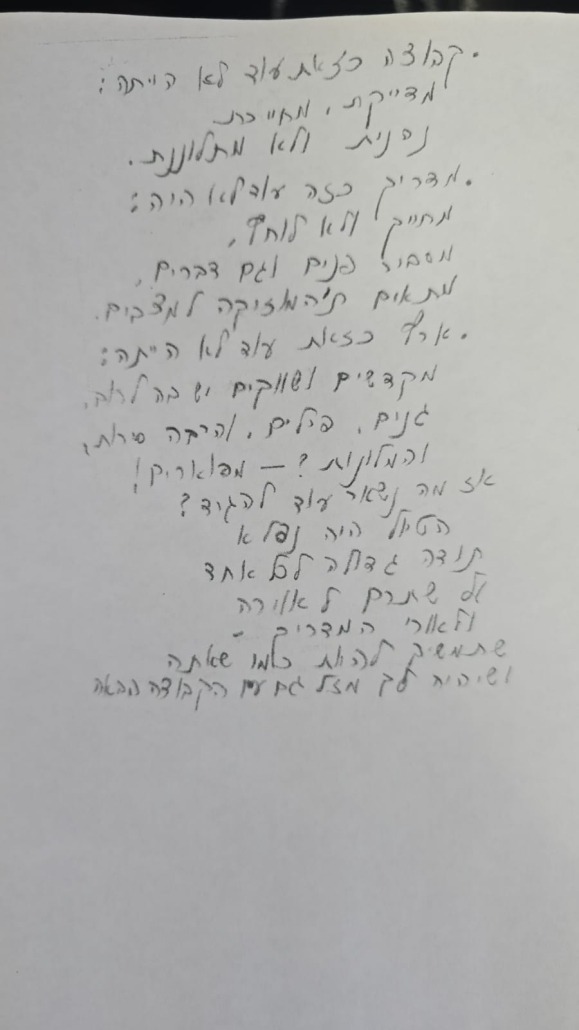 . קבוצה כזאת עוד לא הייתה:
מדייקת, מחייכת
נהנית ולא מתלוננת.
. מדריך כזה עוד לא היה:
מחייך ולא לוחץ,
מסביר פנים וגם דברים,
מתאים ת'המוזיקה למצבים.
. ארץ כזאת עוד לא הייתה:
מקדשים ושווקים יש בה לרוב,
גנים, פילים, והרבה סירות,
והמלונות? – מפוארים!
אז מה נשאר עוד להגיד?
הטיול היה נפלא
תודה גדולה לכל אחד
על שתרם לאוירה
ולאורי המדריך -
שתמשיך להיות כמו שאתה
ושיהיה לך מזל גם עם הקבוצה הבאה